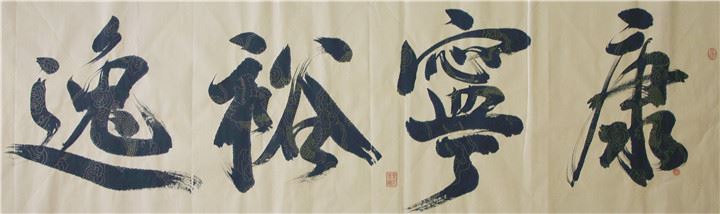 康寧裕逸